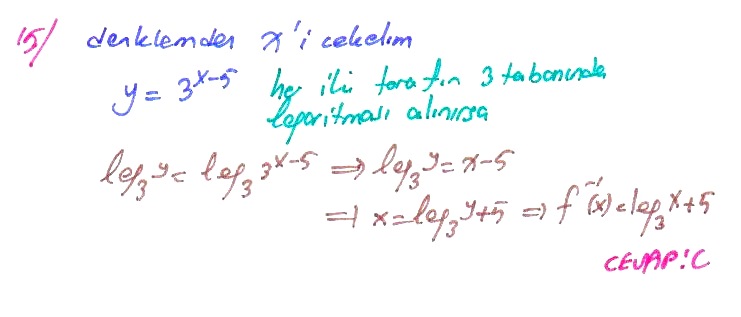 15/ denklemden x'i çekelim
y = 3^{x-5} her iki tarafın 3 tabanında
logaritması alınırsa
log_3 y = log_3 3^{x-5} ⇒ log_3 y = x-5
⇒ x = log_3 y+5 ⇒ f^{-1}(x) = log_3 x+5
CEVAP:C